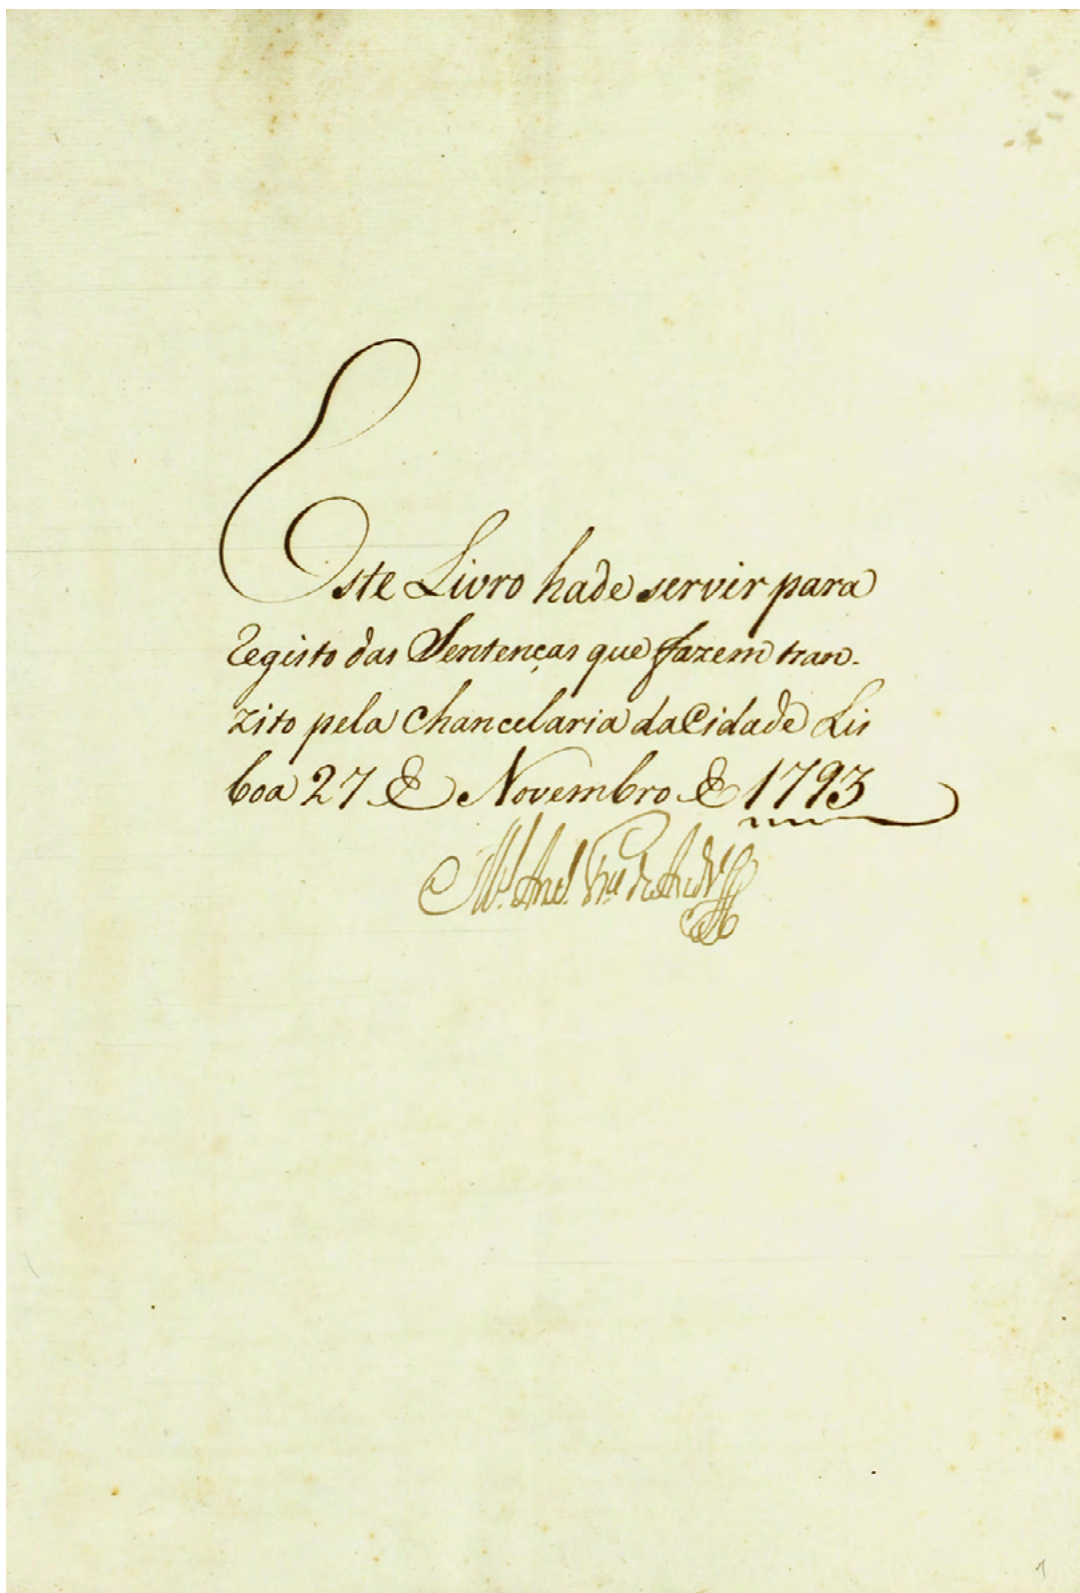 Este Livro hade servir para
Registo das Sentenças que fazem tran-
zito pela Chancelaria da Cidade Lis
boa 27 de Novembro de 1793
1